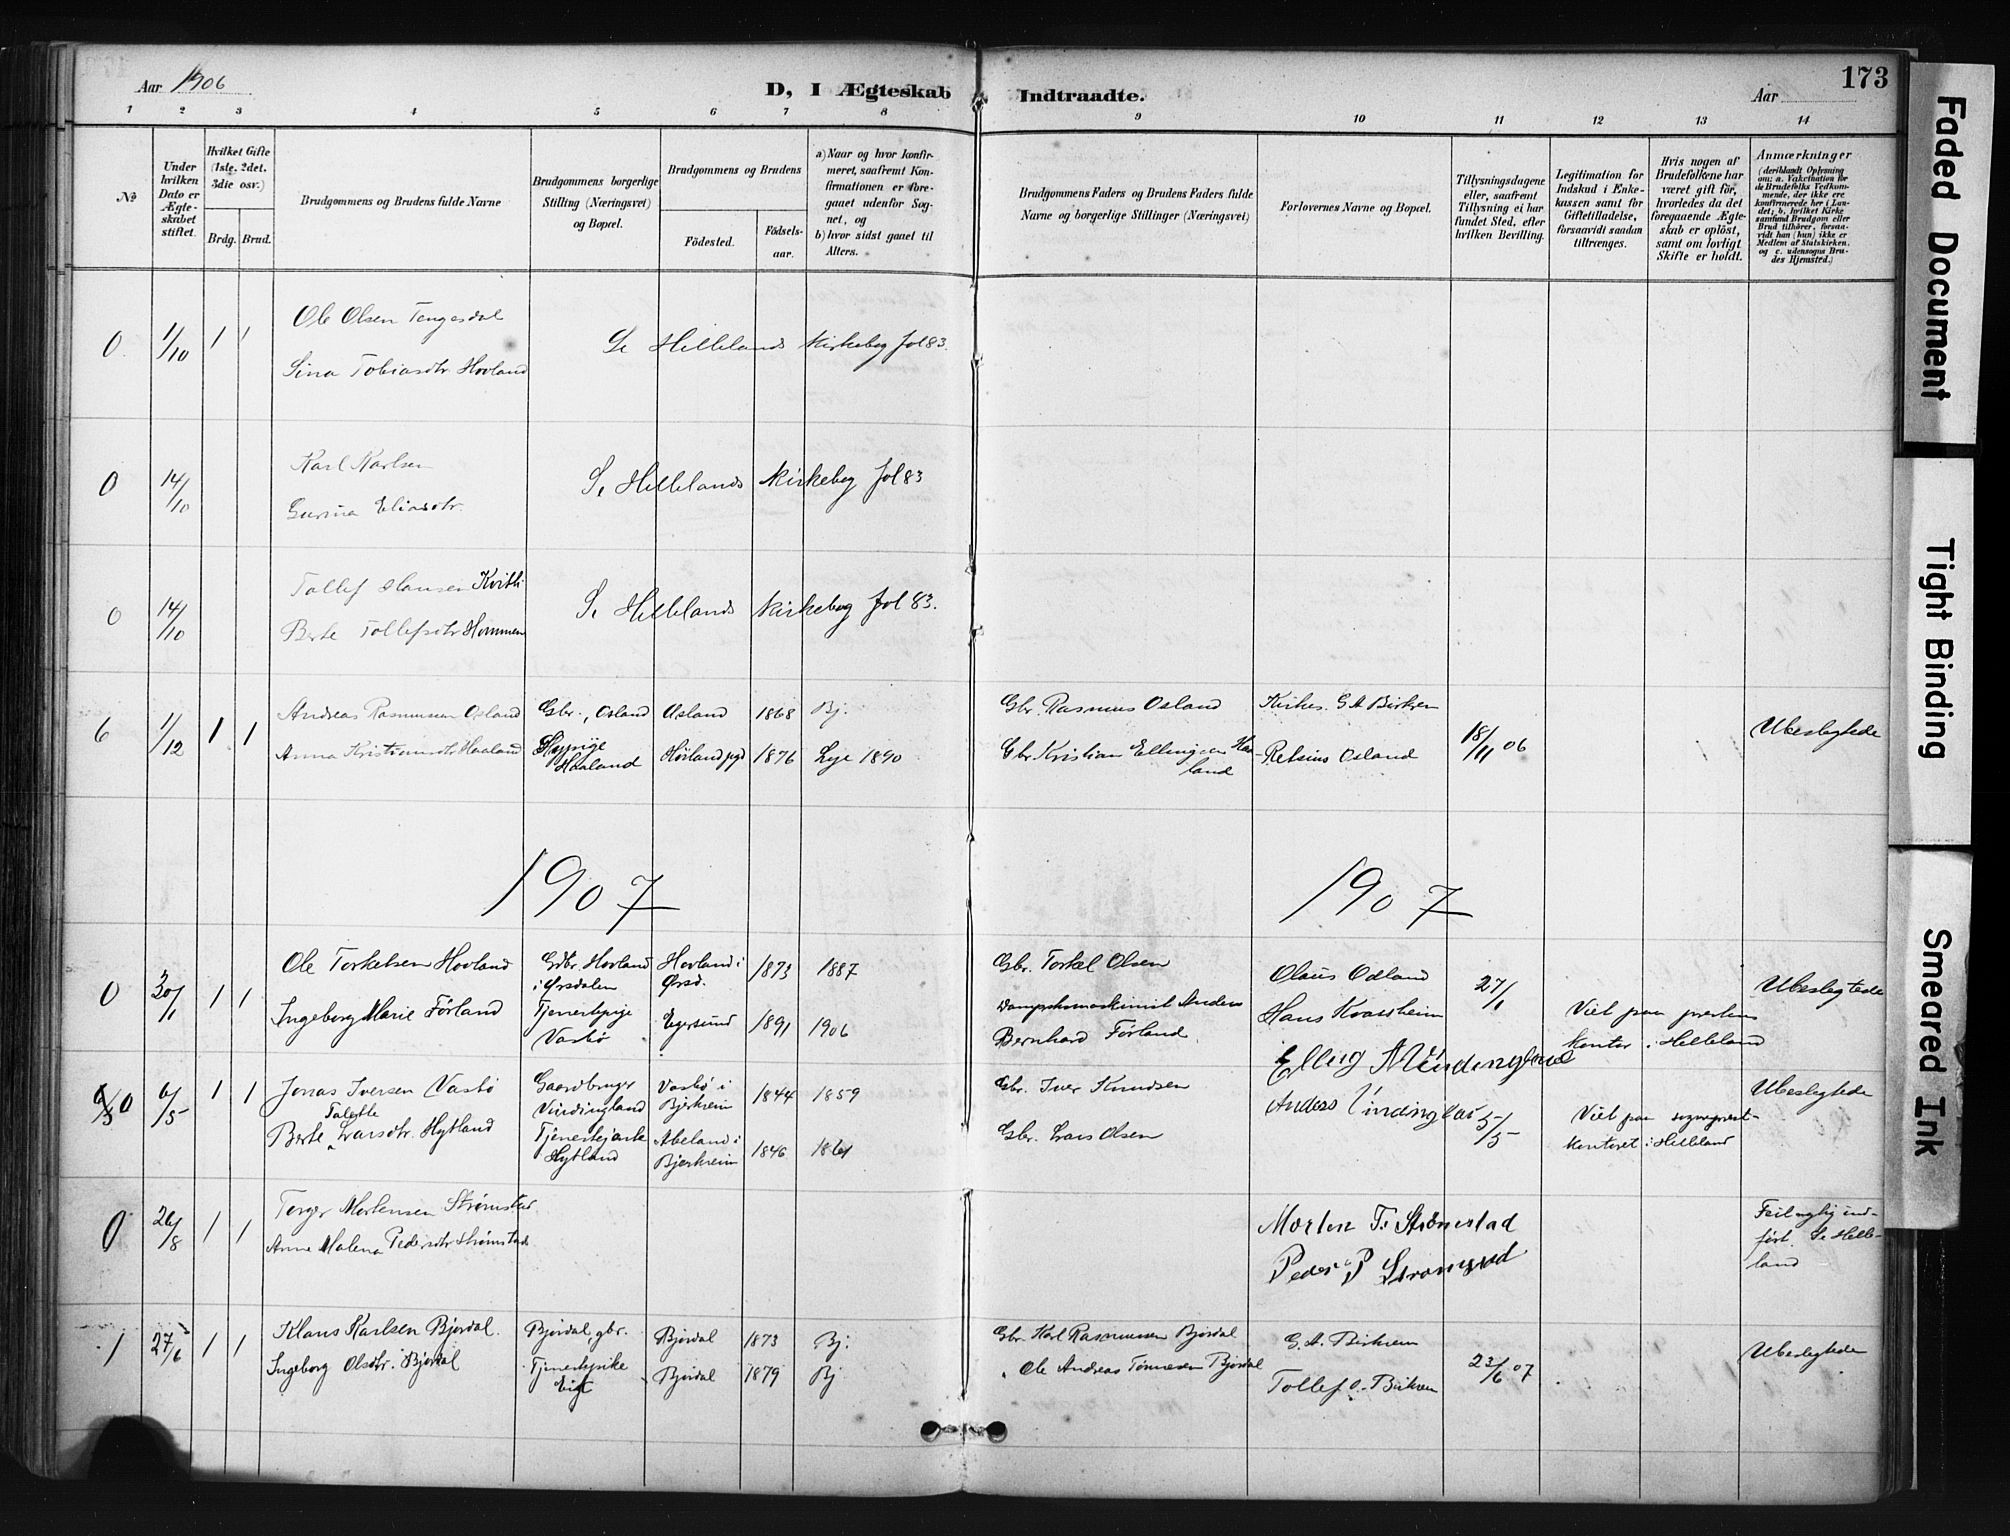 Aar 1906
D, I Ægteskab Indtraadte.
Aar
173
1 2 3 4 5 6 7 8 9 10 11 12 13 14
No
Under hvilken Dato er Ægteskabet stiftet.
Hvilket Gifte (1ste. 2det. 3die osv.)
Brdg. Brud.
Brudgommens og Brudens fulde Navne
Brudgommens borgerlige Stilling (Næringsvei) og Bopæl.
Brudgommens og Brudens
Födested.
Födselsaar.
a) Naar og hvor konfirmeret, saafremt Konfirmationen er foregaaet udenfor Sognet, og
b) hvor sidst gaaet til Alters.
Brudgommens Faders og Brudens Faders fulde Navne og borgerlige Stillinger (Næringsvei)
Forlovernes Navne og Bopæl.
Tillysningsdagene eller, saafremt Tillysning ei har fundet Sted, efter hvilken Bevilling.
Legitimation for Indskud i Ænkekassen samt for Giftetilladelse, forsaavidt saadan tiltrænges.
Hvis nogen af Brudefolkene har været gift för, hvorledes da det foregaaende Ægteskab er oplöst, samt om lovligt Skifte er holdt.
Anmærkninger
(deriblandt Oplysning om: a. Vakcination for de Brudefolks Vedkommende, der ikke ere konfirmerede her i Landet; b. hvilket Kirkesamfund Brudgom eller Brud tilhörer, forsaavidt han (hun) ikke er Medlem af Statskirken, og c. udensogns Brudes Hjemsted.)
0 1/10 1 1 Ole Olsen Tengesdal
Sina Tobiasdtr. Hovland
Se Hellelands Kirkebog fol 83.
0 14/10
Karl Karlsen
Gurina Eliasdtr.
S. Hellelands Kirkebog fol 83
0 14/10
Tollef Hansen Kvitli
Berte Tollefsdtr Hommen
S. Hellelands Kirkebog fol 83.
6 1/12 1 1 Andreas Rasmussen Osland Gbr., Osland Osland 1868 Bj. Gbr. Rasmus Osland Kirkes. G A Birkrem 18/11 06 Ubeslegtede
Anna Kristiansdtr Haaland Haaland 1876 Lye 1890 Gbr. Kristian Ellingsen Haaland Retsius Osland
1907 1907
0 30/1 1 1 Ole Torkelsen Hovland Gdbr. Hovland i Ørsdalen Hovland i Ørsd. 1873 1887 Gbr. Torkel Olsen Olaus Odland 27/1 Ubeslegtede
Ingeborg Marie Förland Tjenestepige Vasbø Egersund 1891 1906 Anders Bernhard Förland Hans Kvassheim Viet paa prestens kontor i Helleland
0 6/5 1 1 Jonas Iversen Vasbø Gaardbruger Vindingland Vasbø i Bjerkreim 1844 1859 Gbr. Iver Knudsen Ubeslegtede
Berte Larsdtr. Hytland Hytland Abeland i Bjerkreim 1846 1861 Gbr. Lars Olsen Anders 5/5 Viet paa sogneprestkontoret i Helleland
0 26/8 1 1 Torger Mortensen Strømstad Morten T. Strömstad Feilagtig indført. Se Helleland
Anne Malena Pedersdtr Strømstad Peder P
1 27/6 1 1 Klaus Karlsen Bjordal. Bjordal, gbr. Bjordal 1873 Bj. Gbr. Karl Rasmussen Bjordal G. A. Birkrem 23/6 07 Ubeslegtede
Ingeborg Olsdtr. Bjordal Tjenestepike Bjordal 1879 Bj Ole Andreas Tønnesen Bjordal Tollef O. Birkrem
Faded Document
Tight Binding
Smeared Ink